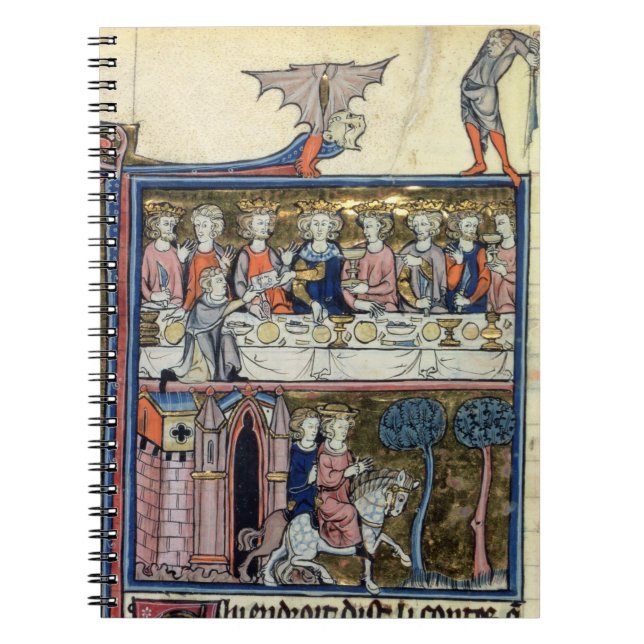 endroit dist li contes q̄